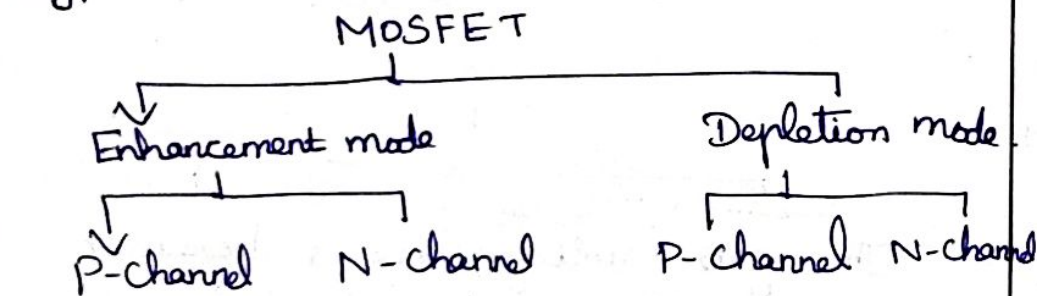 MOSFET
Enhancement mode Depletion mode
P-Channel N-Channel P-Channel N-Channel